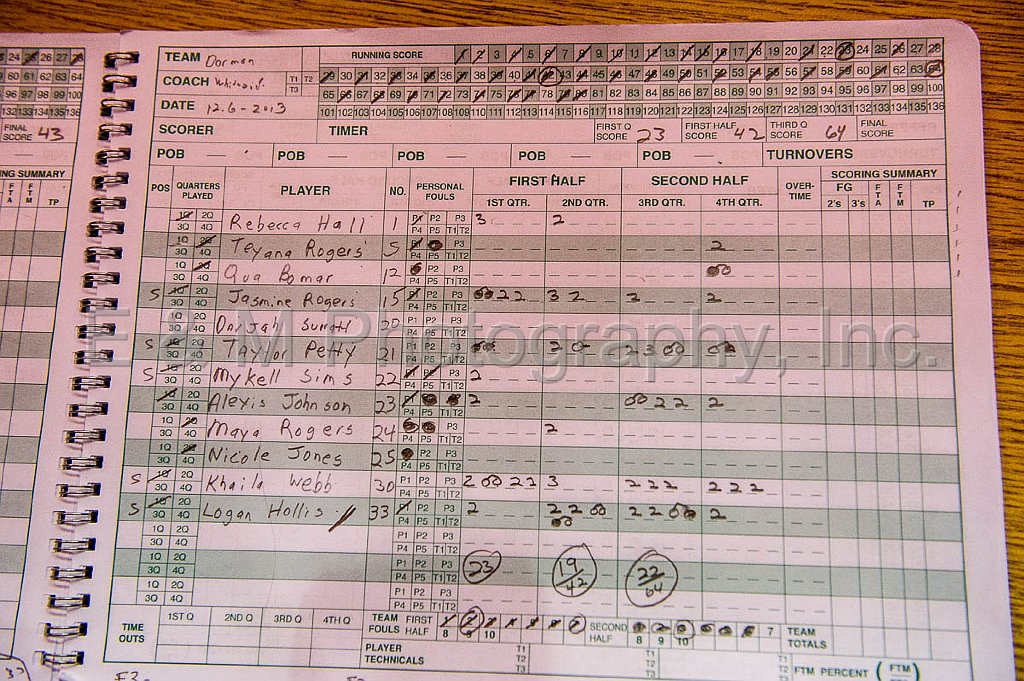 TEAM Dorman RUNNING SCORE 1 2 3 4 5 6 7 8 9 10 11 12 13 14 15 16 17 18 19 20 21 22 23 24 25 26 27 28
24 25 26 27 28
29 30 31 32 33 34 35 36 37 38 39 40 41 42 43 44 45 46 47 48 49 50 51 52 53 54 55 56 57 58 59 60 61 62 63 64
60 61 62 63 64
COACH T1 T2 T3
65 66 67 68 69 70 71 72 73 74 75 76 77 78 79 80 81 82 83 84 85 86 87 88 89 90 91 92 93 94 95 96 97 98 99 100
96 97 98 99 100
DATE 12-6-2013 101 102 103 104 105 106 107 108 109 110 111 112 113 114 115 116 117 118 119 120 121 122 123 124 125 126 127 128 129 130 131 132 133 134 135 136
132 133 134 135 136
FINAL SCORE 43
SCORER TIMER FIRST Q SCORE 23 FIRST HALF SCORE 42 THIRD Q SCORE 64 FINAL SCORE
POB — POB — POB — POB — POB — TURNOVERS
SUMMARY
FTA FTM TP
POS QUARTERS PLAYED PLAYER NO. PERSONAL FOULS FIRST HALF SECOND HALF OVER-TIME SCORING SUMMARY
1ST QTR. 2ND QTR. 3RD QTR. 4TH QTR. FG 2's 3's FTA FTM TP
1Q 2Q 3Q 4Q Rebecca Hall 1 P1 P2 P3 P4 P5 T1 T2 3 2
1Q 2Q 3Q 4Q Teyana Rogers 5 P1 P3 P4 P5 T1 T2 2
1Q 2Q 3Q 4Q Qua Bomar 12 P2 P3 P4 P5 T1 T2
S 1Q 2Q 3Q 4Q Jasmine Rogers 15 P1 P2 P3 P4 P5 T1 T2 2 2 3 2 2 2
1Q 2Q 3Q 4Q 20 P1 P2 P3 P4 P5 T1 T2
E & M Photography, Inc.
S 1Q 2Q 3Q 4Q Taylor Petty 21 P1 P2 P3 P4 P5 T1 T2
S 1Q 2Q 3Q 4Q Mykell Sims 22 P1 P2 P3 P4 P5 T1 T2 2
1Q 2Q 3Q 4Q Alexis Johnson 23 P1 P4 P5 T1 T2 2 2 2 2
1Q 2Q 3Q 4Q Maya Rogers 24 P3 P4 P5 T1 T2 2
1Q 2Q 3Q 4Q Nicole Jones 25 P2 P3 P4 P5 T1 T2
S 1Q 2Q 3Q 4Q Khaila Webb 30 P1 P2 P3 P4 P5 T1 T2 2 2 2 3 2 2 2 2 2 2
S 1Q 2Q 3Q 4Q Logan Hollis 33 P1 P2 P3 P4 P5 T1 T2 2 2 2 2 2 2
1Q 2Q 3Q 4Q P1 P2 P3 P4 P5 T1 T2
1Q 2Q 3Q 4Q P1 P2 P3 P4 P5 T1 T2 23 19/42 22/64
1Q 2Q 3Q 4Q P1 P2 P3 P4 P5 T1 T2
TIME OUTS 1ST Q 2ND Q 3RD Q 4TH Q TEAM FOULS FIRST HALF 1 2 3 4 5 6 7 8 9 10 SECOND HALF 7 8 9 10 TEAM TOTALS
PLAYER TECHNICALS T1 T2 T3 T1 T2 T3 T1 T2 T3 FTM PERCENT (FTM